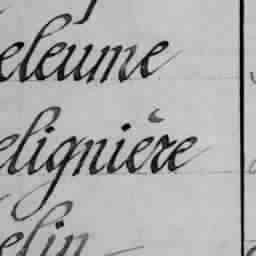 eleume
elignière
elin